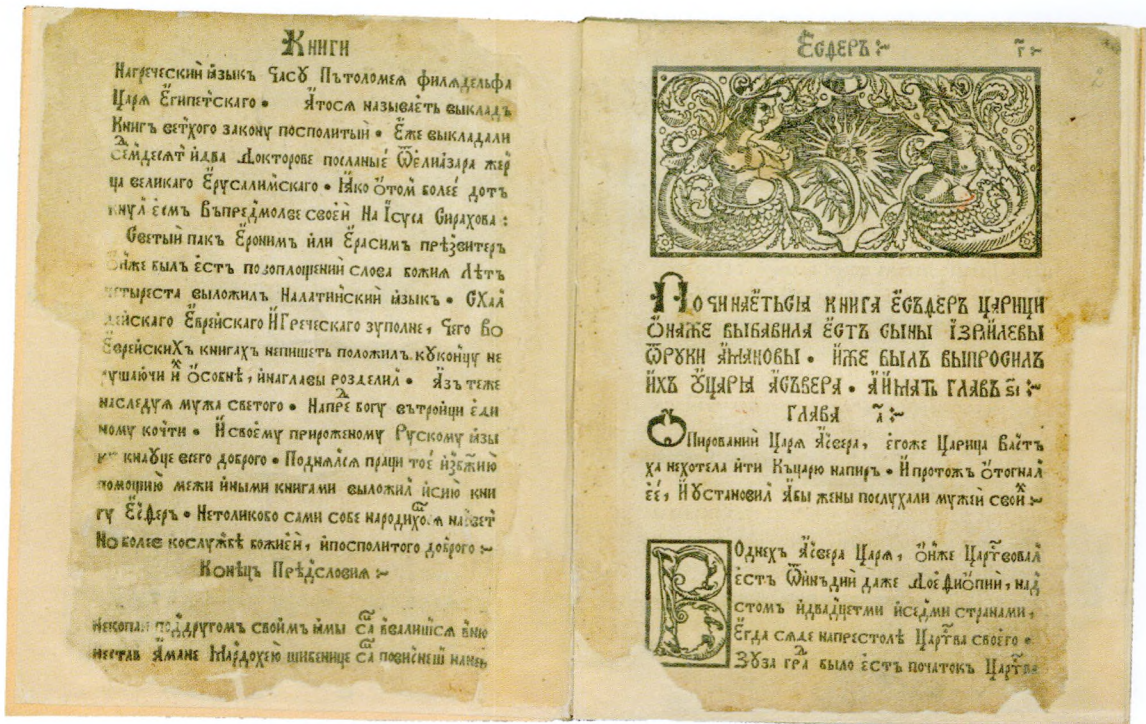 Книги
На греческий ꙗзыкъ Часꙋ Пътоломея филѧдельфа
Царѧ Египетскаго • Атосѧ называеть выкладъ
Книгъ ветхого закону посполитый • Еже выкладали
семдесѧт идва Докторове посланые ѿелиазара жер
ца великаго Ерусалимскаго • Ꙗко отом более дот
кнул есмъ Въпредмолве своей На Ісуса Сирахова :
Светый пак Еронимъ или Ерасимъ презвитеръ
онже былъ естъ повоплощений слова божиꙗ Лѣтъ
четыреста выложилъ Налатинский ꙗзыкъ • СХал
дейскаго Еврейскаго ИГреческаго зуполне, Чего во
Еврейскихъ книгахъ непишеть положилъ, куконцу не
рушаючи их особнѣ, инаглавы розделил • Азъ теже
наследуꙗ мужа светого • Напред богу вътройци еди
ному кочти • Исвоему прироженому Рускому ꙗзы
кнауце всего доброго • Поднялсѧ праци тое избжию
помощию межи иными книгами выложил исию кни
гу Есѳеръ • Нетоликобо сами собе народихомсѧ насвет
Но более кослужбѣ божией, ипосполитого доброго :~
Конець Предсловиꙗ :~
поддругом своимъ
Амане Мардохею шибенице
Есѳеръ :~
г҃ :~
Починаетьсꙗ книга есъѳеръ царици
онаже выбавила естъ сыны ізраилевы
ѿруки амановы • иже былъ выпросилъ
ихъ уцарꙗ асъвера • аимать главъ ѕ҃і :~
глава а҃ :~
Опировании Царѧ Асвера, егоже Царица Васть
ха нехотела ити Къцарю напиръ • Ипротожъ отогнал
ее, И установил Абы жены послухали мужей своих :~
Воднехъ Асвера Царѧ, онже Царствовал
естъ ѿИнъдии даже Доеѳиопии, над
стомъ идвадцетми иседми странами,
Егда сѧде напрестолѣ Царства своего •
Зуза град было естъ початокъ Царства